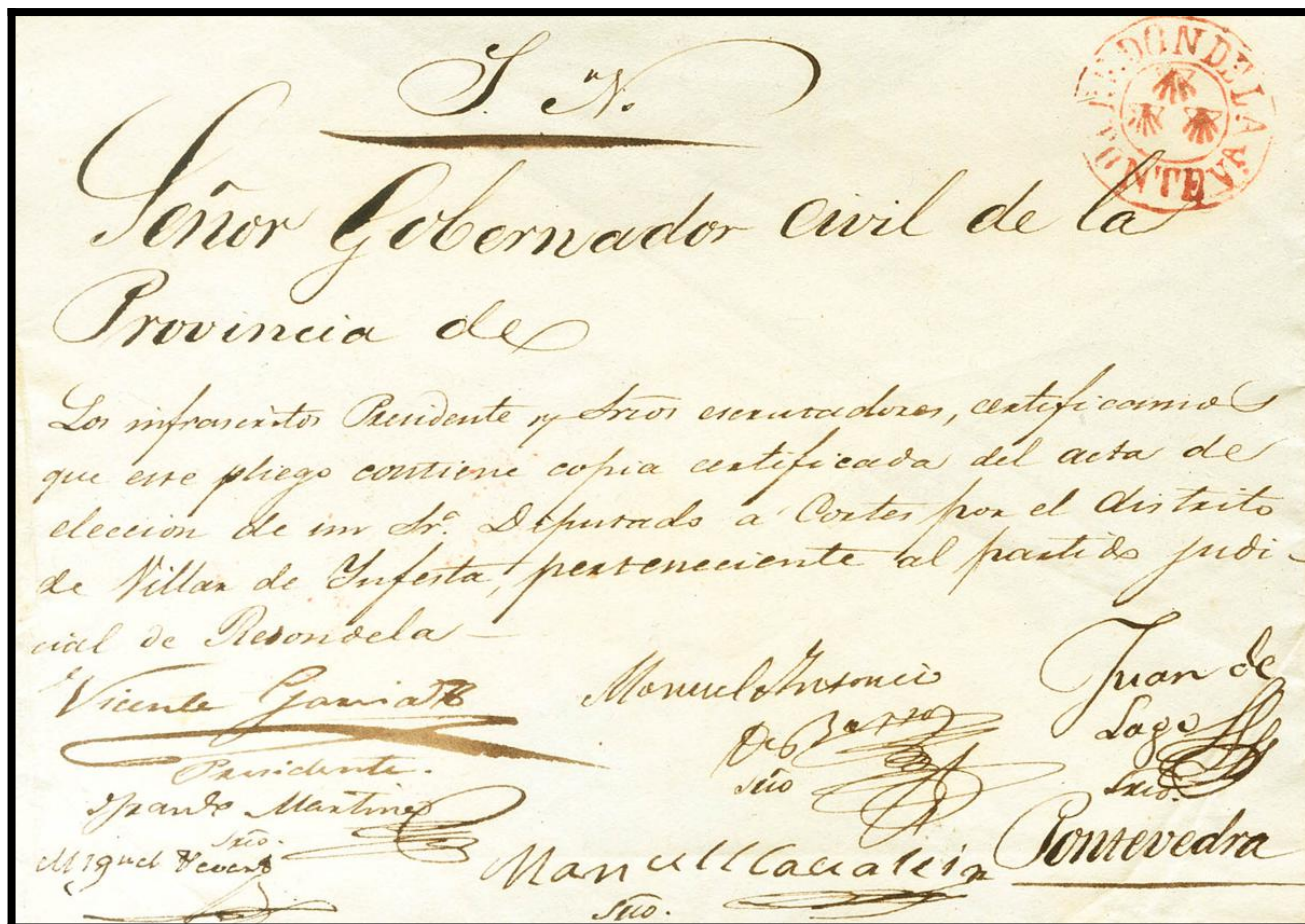 S. N.
REDONDELA
PONTEVA
Señor Gobernador Civil de la
Provincia de
Los infrascritos Presidente y Srios escrutadores, certificamos
que este pliego contiene copia certificada del acta de
eleccion de un Sr. Diputado a Cortes por el distrito
de Villar de Infesta, perteneciente al partido judi-
cial de Redondela —
Vicente Garcia
Presidente.
Manuel Antonio
De
Srio
Juan de
Lago
Srio.
Martinez
Srio.
Miguel
Manuel
Srio.
Pontevedra